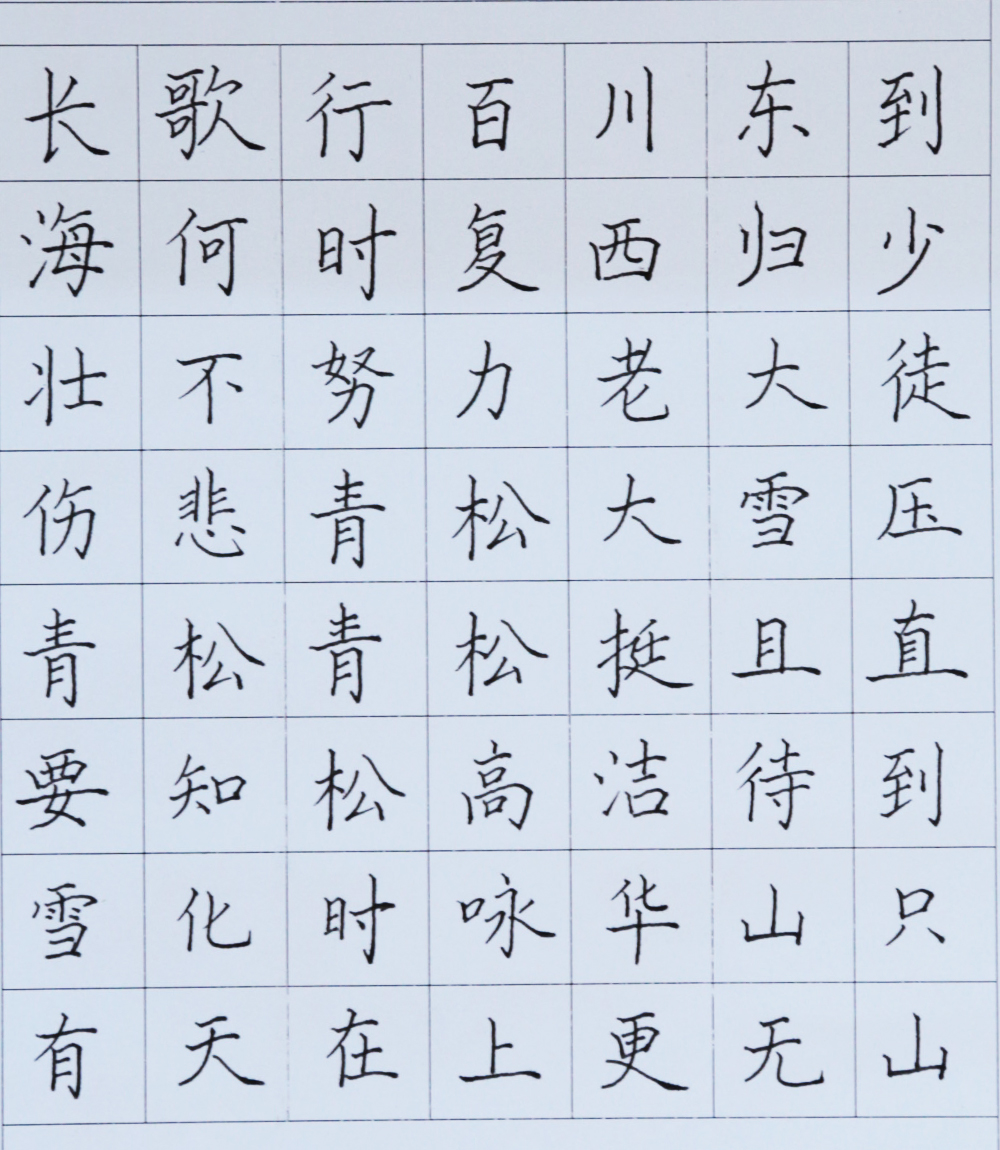 长歌行百川东到
海何时复西归少
壮不努力老大徒
伤悲青松大雪压
青松青松挺且直
要知松高洁待到
雪化时咏华山只
有天在上更无山